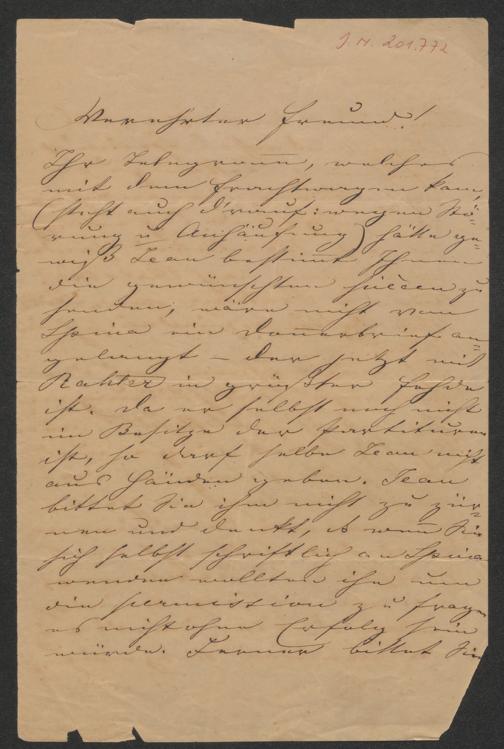 J. N. 201.772
Verehrter Freund!
Ihr Telegramm, welches
mit dem Frachtwagen kam,
(steht auch d'rauf: wegen Stö-
rung u Anhäufung) hätte ge-
wiß Jean bestimmt Ihnen
die gewünschten Piècen zu
senden, wäre nicht von
Spina ein Donnerbrief an-
gelangt – der jetzt mit
Rahter in größter Fehde
ist. Da er selbst noch nicht
im Besitze der Partituren
ist, so darf selbe Jean nicht
aus Händen geben. Jean
bittet Sie ihm nicht zu zür-
nen und denkt, daß wenn Sie
sich selbst schriftlich an Spina
wenden wollten ihn um
die permission zu fragen
es nicht ohne Erfolg sein
würde. Ferner bittet Sie